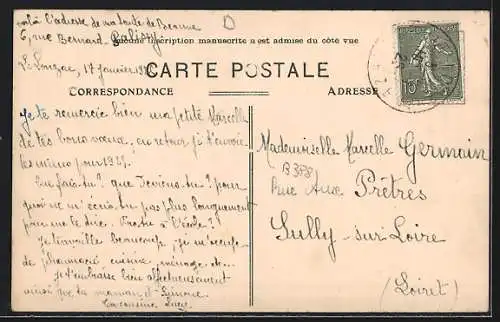 voilà l'adresse de ma tante de Beaune
6, rue Bernard-Palissy
Aucune inscription manuscrite n'est admise du côté vue
D
17 Janvier
CARTE POSTALE
CORRESPONDANCE
ADRESSE
10
Je te remercie bien ma petite Marcelle
de tes bons voeux, en retour je t'envoie
les miens pour
Que fais-tu? que deviens-tu? pour
quoi ne m'écris-tu pas plus longuement
pour me le dire. à l'école?
Je travaille beaucoup, je m'occupe
de pharmacie cuisine, ménage, etc..
Je t'embrasse bien affectueusement
ainsi que ta maman et Simone.
Ta cousine
Mademoiselle Marcelle Germain
B 388
Rue Aux Prêtres
Sully-sur-Loire
(Loiret)